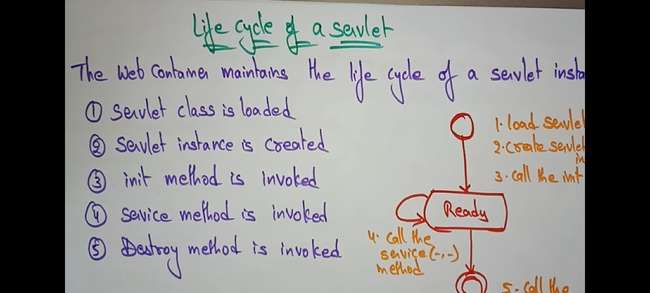 Life cycle of a servlet
The Web Container maintains the life cycle of a servlet insta
① Servlet class is loaded
② Servlet instance is created
③ init method is invoked
④ service method is invoked
⑤ Destroy method is invoked
1. load servlet
2. create servlet
in
3. call the init
Ready
4. call the
service(-,-)
method
5. call the